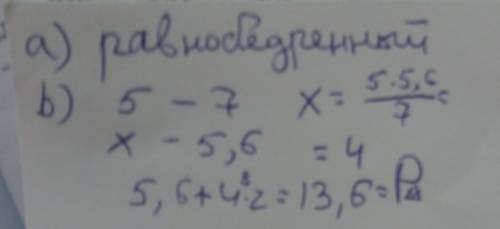 a) равнобедренный
b) 5 – 7 x = 5·5,6/7 =
x – 5,6 = 4
5,6+4·2=13,6=P△